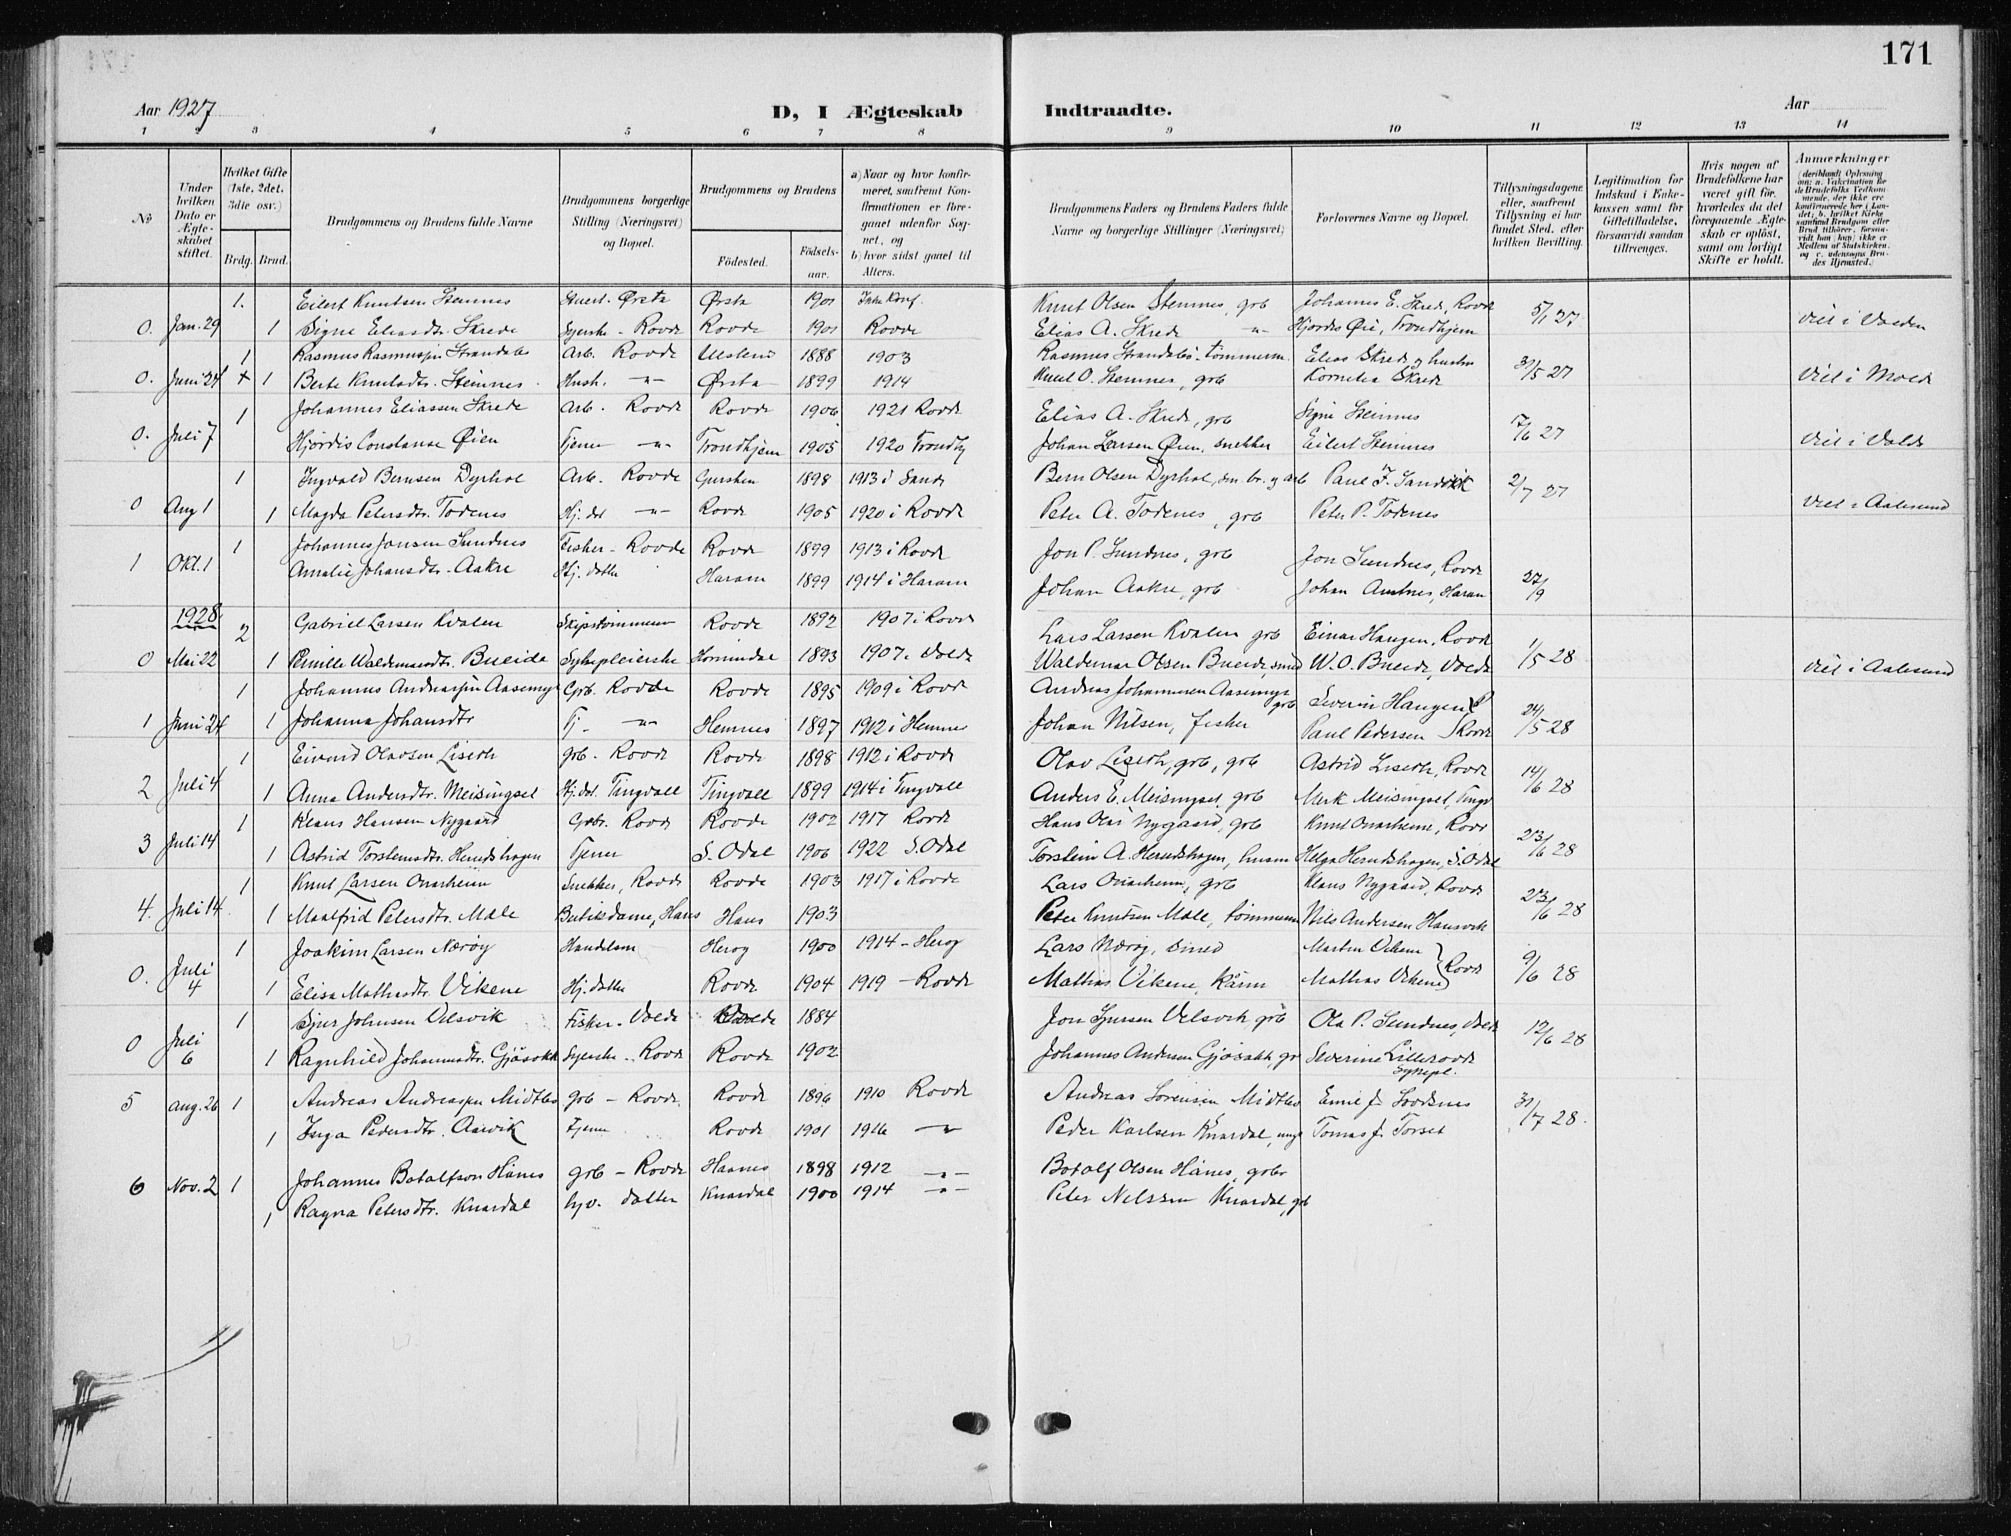 171
Aar 1927
D, I Ægteskab
Indtraadte.
Aar
1 2 3 4 5 6 7 8 9 10 11 12 13 14
No
Under hvilken Dato er Ægteskabet stiftet.
Hvilket Gifte (1ste, 2det, 3die osv.)
Brdg. Brud.
Brudgommens og Brudens fulde Navne
Brudgommens borgerlige Stilling (Næringsvei) og Bopæl.
Brudgommens og Brudens
Fødested.
Fødselsaar.
a) Naar og hvor konfirmeret, samfremt Konfirmationen er foregaaet udenfor Sognet, og
b) hvor sidst gaaet til Alters.
Brudgommens Faders og Brudens Faders fulde Navne og borgerlige Stillinger (Næringsvei)
Forlovernes Navne og Bopæl.
Tillysningsdagene eller, saafremt Tillysning ei har fundet Sted, efter hvilken Bevilling.
Legitimation for Indskud i Enkekassen samt for Giftetilladelse, forsaavidt saadan tiltrænges.
Hvis nogen af Brudefolkene har været gift før, hvorledes da det foregaaende Ægteskab er opløst, samt om lovligt Skifte er holdt.
Anmærkninger
1. Eilert Knutsen Steinnes Ørsta Ørsta 1901 Ikke Konf. Knut Olsen Steinnes, grb Johannes E. Skrede, Rovde 5/1 27
0. Jan. 29 1 Signe Eliasdtr. Skrede Syerske - Rovde Rovde 1901 Rovde Elias A. Skrede -"- Hjørdis Øie, Trondhjem viet i Volden
1 Rasmus Rasmussen Strandabø Arb. Rovde Ulstein 1888 1903 Rasmus Strandabø, tømmerm. Elias Skrede og hustru
0. Juni 24 1 Berte Knutsdtr. Steinnes Hush. -"- Ørsta 1899 1914 Knut O. Steinnes, grb Kornelia Skrede 31/5 27 Viet i Molde
1 Johannes Eliassen Skrede Arb. Rovde Rovde 1906 1921 Rovde Elias A. Skrede, grb Signe Steinnes
0. Juli 7 Hjørdis Constanse Øien Tjener -"- Trondhjem 1905 1920 Trondhj Johan Larsen Øien, snekker Eilert Steinnes 17/6 27 Viet i Volda
1 Ingvald Bernsen Dyrhol Arb. Rovde Gursken 1898 1913 i Sande Bern Olsen Dyrhol, sm. br. og arb Paul F. Sandvik 2/7 27
0 Aug 1 1 Magda Petersdtr. Todenes Hj. dat -"- Rovde 1905 1920 i Rovde Peter A. Todenes, grb Peter P. Todenes Viet i Aalesund
1 Johannes Jonsen Sundnes Fisker - Rovde Rovde 1899 1913 i Rovde Jon P. Sundnes, grb Jon Sundnes, Rovde
1 Okt. 1 Amalie Johansdtr. Aakre Hj. datter Haram 1899 1914 i Haram Johan Aakre, grb Johan Haram 27/9
1928
2 Gabriel Larsen Kvalen Skipstømmerm Rovde 1892 1907 i Rovde Lars Larsen Kvalen grb Einar Haugen, Rovde
0 Mai 22 1 Pernille Waldemarsdtr. Bueide Sykepleierske Hornindal 1893 1907 i Volda Waldemar Olsen Bueide, smed W. O. Bueide, Volda 1/5 28 Viet i Aalesund
1 Johannes Andreassen Aasemyr Grb. Rovde Rovde 1895 1909 i Rovde Andreas Johannesen Aasemyr grb Severin Haugen
1 Juni 24 1 Johanna Johansdtr Tj -"- Hemnes 1897 1912 i Hemnes Johan Nilsen, fisker Paul Pedersen Rovde 24/5 28
1 Eivind Olavsen Liseth grb. Rovde Rovde 1898 1912 i Rovde Olav Liseth, grb, grb Astrid Liseth, Rovde
2 Juli 4 1 Anna Andersdtr. Meisingset Hj. dat. Tingvoll Tingvoll 1899 1914 i Tingvoll Anders E. Meisingset, grb Merk Meisingset, Tingv 14/6 28
1 Klaus Hansen Nygaard Grbr. Rovde Rovde 1902 1917 Rovde Hans Olai Nygaard, grb Knut Onarheim, Rovde
3 Juli 14 1 Astrid Torsteinsdtr. Herudshagen Tjener S. Odal 1906 1922 S. Odal Torstein A. Herudshagen, husm Helga Herudshagen, S. Odal 23/6 28
1 Knut Larsen Onarheim Snekker, Rovde Rovde 1903 1917 i Rovde Lars Onarheim, grb Klaus Nygaard, Rovde
4. Juli 14. 1 Maalfrid Petersdtr. Male Butikdame, Haus Haus 1903 Peter Knutsen Male, tømmerm Nils Andersen 23/6 28
1 Joakim Larsen Nærøy Handelsm Herøy 1900 1914 - Herøy Lars Nærøy, smed Martin Vikene
0. Juli 4 1 Elisa Mathiasdtr. Vikene Hj. datter Rovde 1904 1919 - Rovde Mathias Vikene, Mathias Vikene Rovde 9/6 28
1 Sjur Johnsen Velsvik Fisker - Volda 1884 Jon Sjursen Velsvik grb Ola P. Sundnes, Volda
0 Juli 6 1 Ragnhild Johannesdtr. Gjøsakk Syerske - Rovde Rovde 1902 Johannes Andersen Gjøsakk, gr Severine Lillerovde Sykepl. 12/6 28
5 Aug. 26 1 Andreas Andreassen Midtbø grb - Rovde. Rovde 1896 1910 Rovde Andreas Sørensen Midtbø Emil J.
1 Inga Pedersdtr. Aasvik Tjener Rovde 1901 1916 -"- Peder Karlsen Knardal, Tomas J. Torset 31/7 28.
6 Nov. 2 1 Johannes Botolfson Hånes grb - Rovde Haanes 1898 1912 -"- Botolf Olsen Hånes, grbr
1 Ragna Petersdtr. Knardal hjv. datter Knardal 1900 1914 -"- Peter Nelssen Knardal, grb